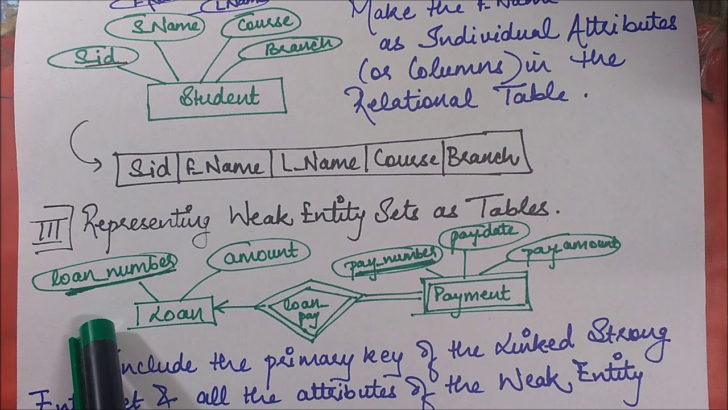 F_Name L_Name
S_Name Course
Sid Branch
Student
Make the F_Name
as Individual Attributes
(or Columns) in the
Relational Table.
Sid F_Name L_Name Course Branch
III Representing Weak Entity Sets as Tables.
loan_number amount pay_number pay_date pay_amount
Loan loan_pay Payment
include the primary key of the Linked Strong
& all the attributes of the Weak Entity